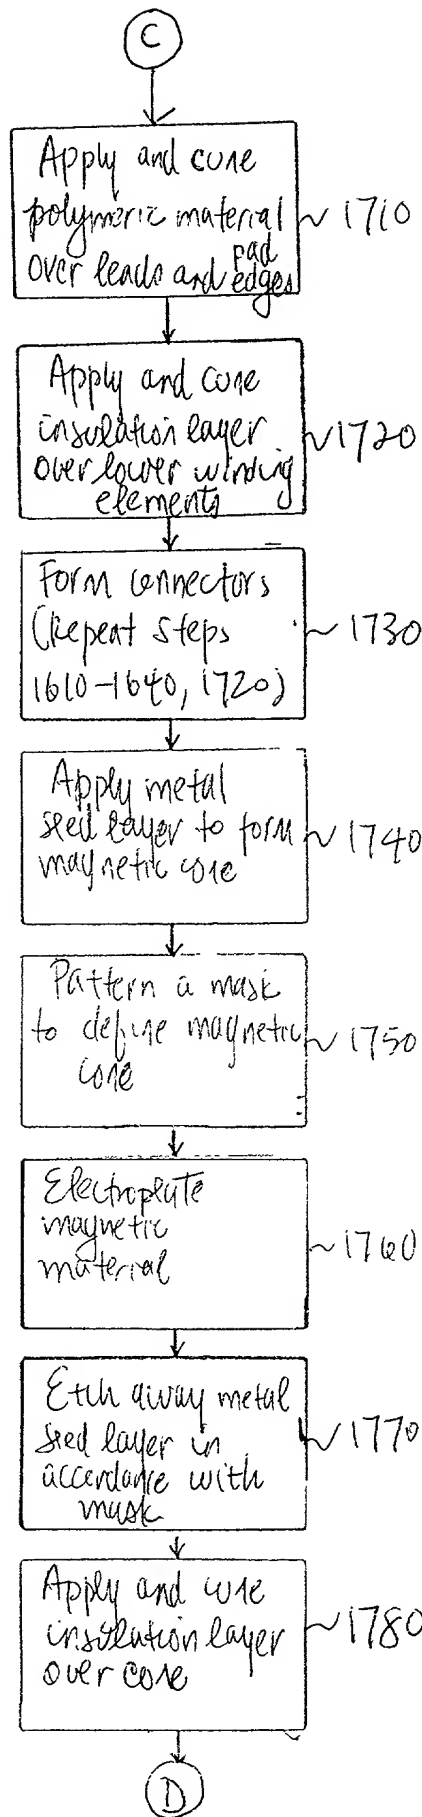 C
Apply and cure
polymeric material
over leads and pad edges
1710
Apply and cure
insulation layer
over lower winding
elements
1720
Form connectors
(Repeat Steps
1610-1640, 1720)
1730
Apply metal
seed layer to form
magnetic core
1740
Pattern a mask
to define magnetic
core
1750
Electroplate
magnetic
material
1760
Etch away metal
seed layer in
accordance with
mask
1770
Apply and cure
insulation layer
over core
1780
D